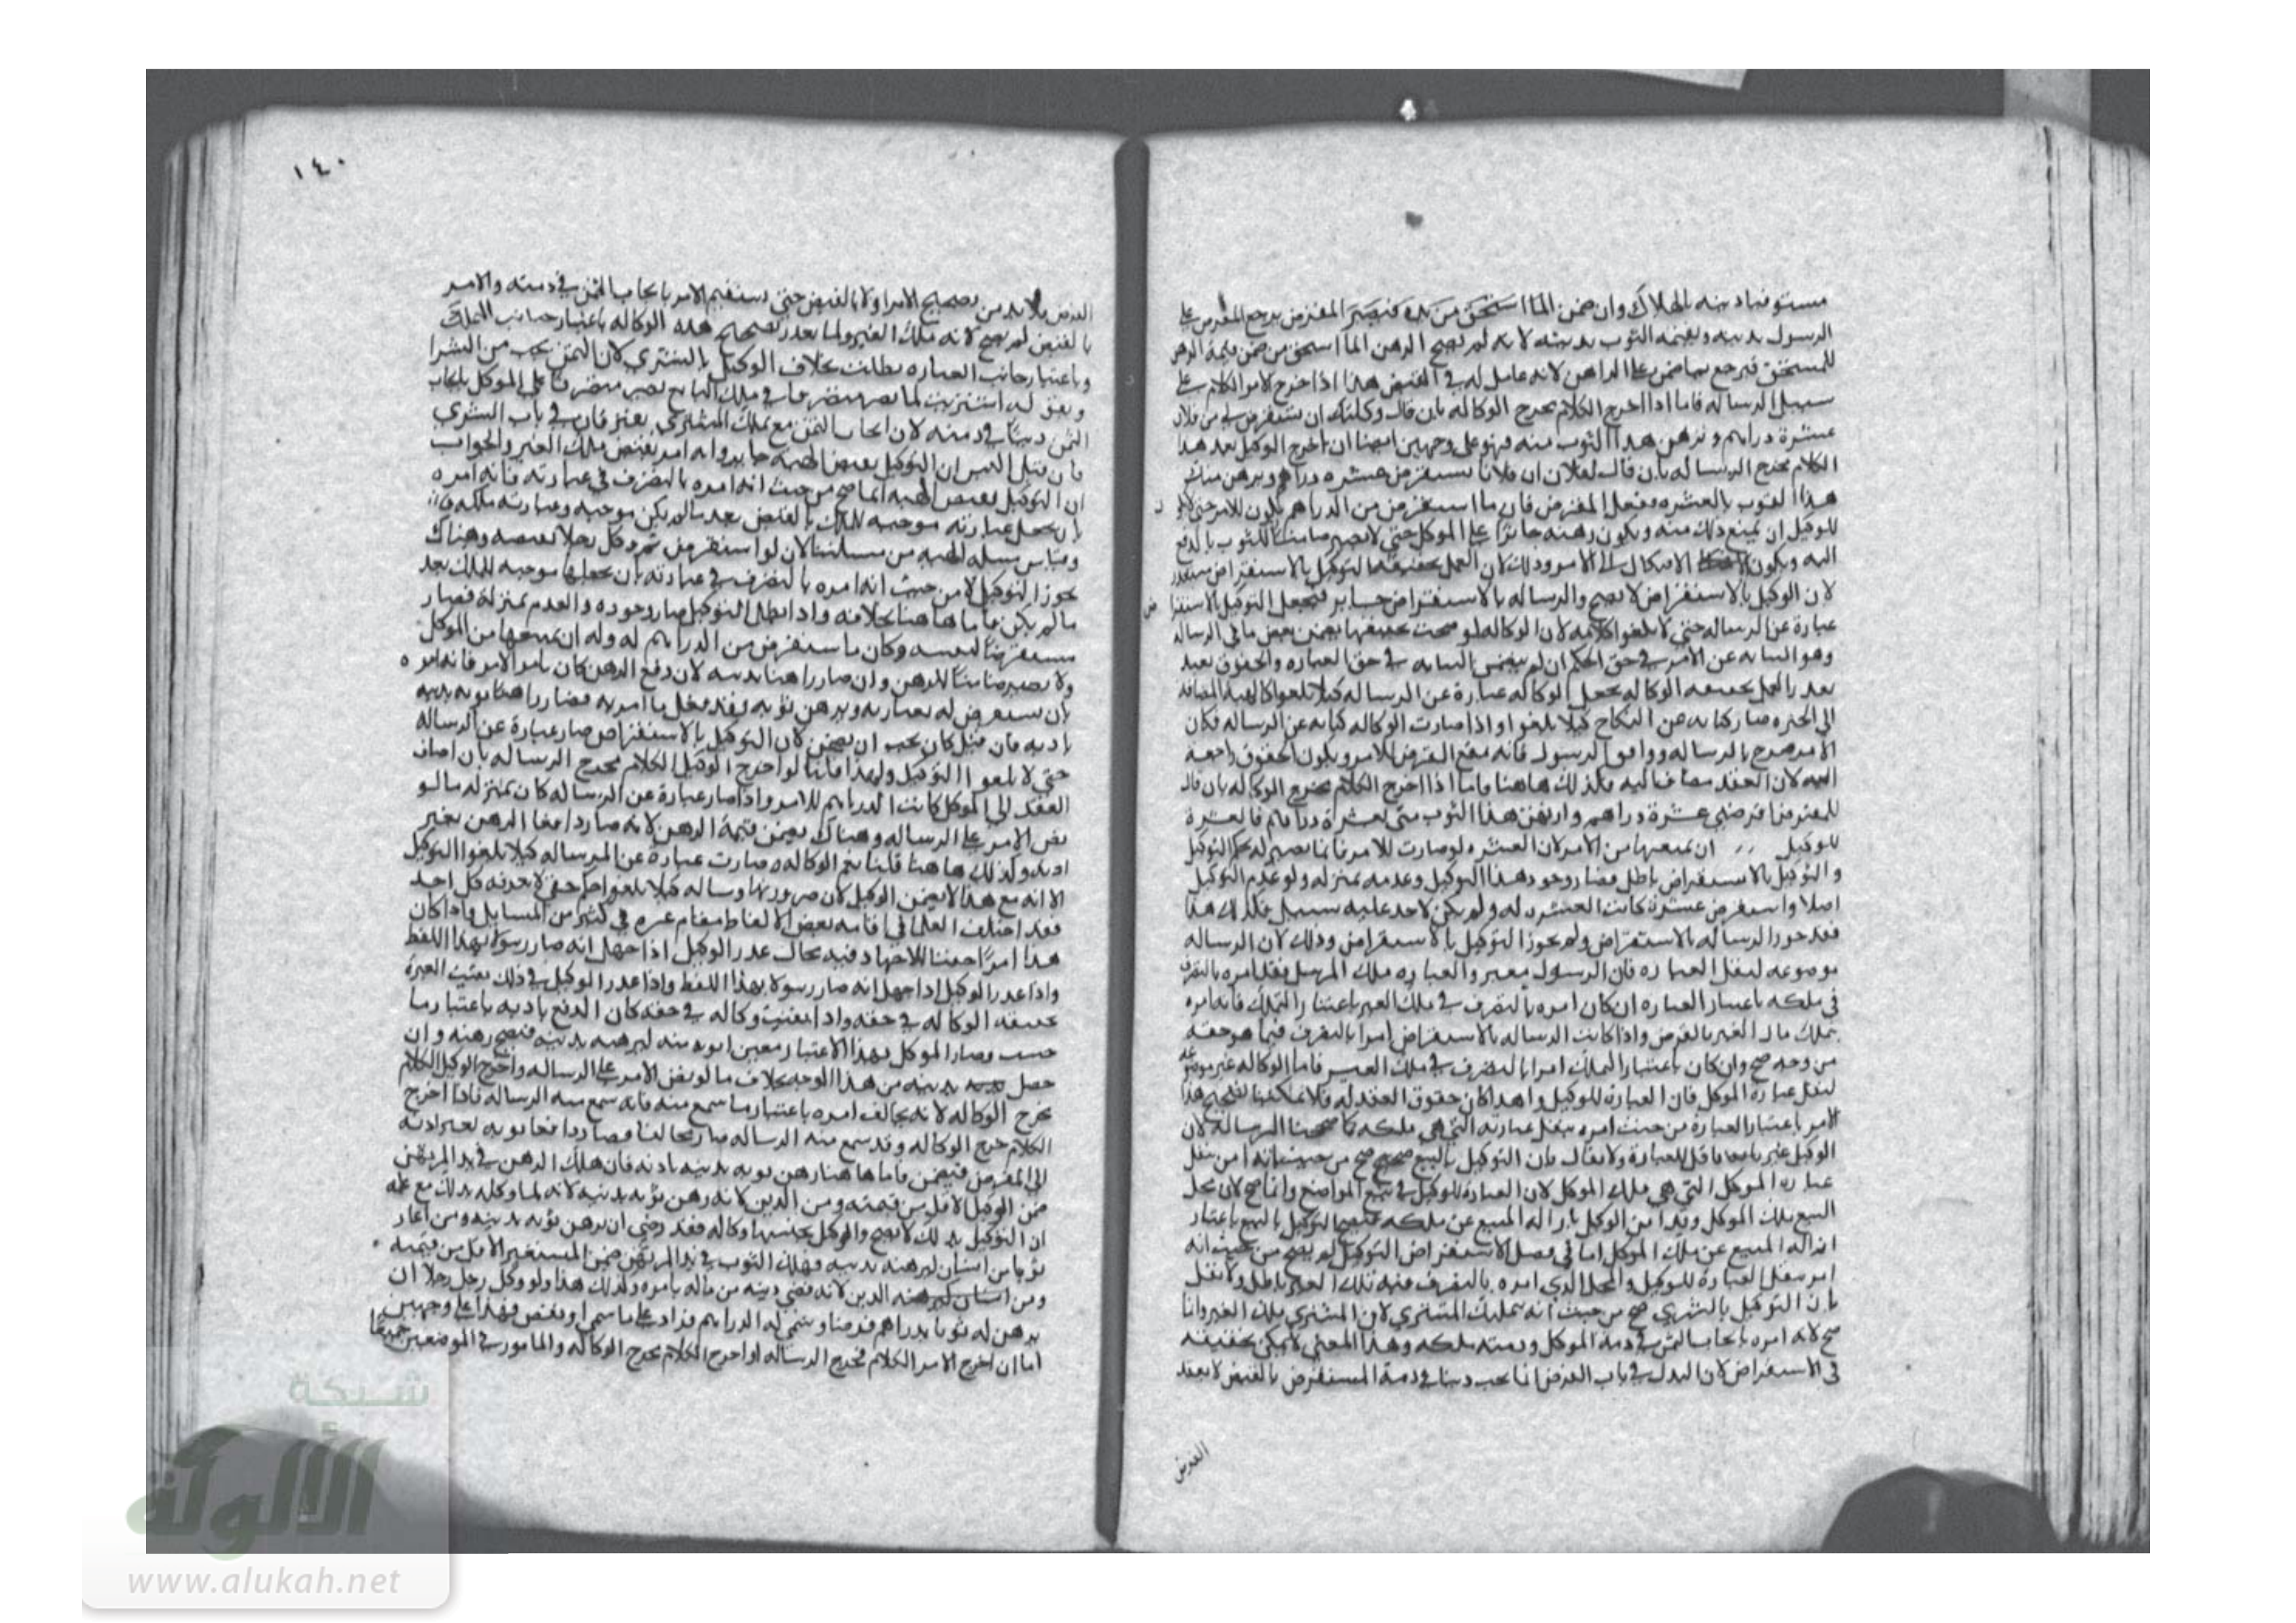 مستوفيا دينه بالهلاك وان ضمن لما استحق من يده فيصير المقرض يرجع المقرض على
الرسول بدينه وبقيمه الثوب بدينه لانه لم يصح الرهن لما استحق من ضمن قيمة الرهن
للمستحق فيرجع بما ضمن على الراهن لانه عامل له في القبض هذا اذا خرج لامر الكلام على
سبيل الرساله فاما اذا اخرج الكلام مخرج الوكاله بان قال وكلتك ان تستقرض لي من فلان
عشرة دراهم وترهن هذا الثوب منه فهو على وجهين ايضا ان اخرج الوكيل بعد هذا
الكلام مخرج الرساله بان قال لفلان ان فلانا يستقرض عشره دراهم ويرهن منك
هذا الثوب بالعشره ففعل المقرض فان ما استقرض من الدراهم يكون للامر حتى
للوكيل ان يمنع ذلك منه ويكون رهنه جائزا على الموكل حتى لا يصير ضامنا للثوب بالدفع
اليه ويكون الاشكال الى الامر وذلك لان العمل بحقيقه التوكيل بالاستقراض متعذر
لان الوكيل بالاستقراض لا يصح والرساله بالاستقراض جايز فيجعل التوكيل بالاستقرا
عبارة عن الرساله حتى لا يلغوا كلامه لان الوكاله لو صحت بحقيقتها تضمن بعض ما في الرساله
وهو النيابه عن الامر في حق الحكم ان لم يتضمن النيابه في حق العباره والحقوق فعند
تعذر العمل بحقيقه الوكاله يجعل الوكاله عبارة عن الرساله كيلا يلغوا كالهبة المضافه
الى الحره صار كنايه عن النكاح كيلا يلغوا واذا صارت الوكاله كنايه عن الرساله فكان
الامر صرح بالرساله ووافق الرسول فانه يقع القرض للامر ويكون الحقوق راجعه
اليه لان العقد مضاف اليه فكذلك هاهنا فاما اذا اخرج الكلام مخرج الوكاله بان قال
للمقرض اقرضني عشرة دراهم وارتهن هذا الثوب مني بعشرة دراهم فالعشرة
للوكيل ان يمنعها من الامر لان العشره لو صارت للامر فانما تصير له بحكم التوكيل
والتوكيل بالاستقراض باطل فصار وجود هذا التوكيل وعدمه بمنزله ولو عدم التوكيل
اصلا واستقرض عشرة كانت العشره له ولم يكن لاحد عليه سبيل فكذلك هذا
فقد جوز الرساله بالاستقراض ولم يجوز التوكيل بالاستقراض وذلك لان الرساله
موضوعه لنقل العباره فان الرسول معبر والعباره ملك المرسل فقد امره بالتصرف
في ملكه باعتبار العباره ان كان امره بالتصرف في ملك الغير باعتبار التملك فانه امره
بتملك مال الغير بالقرض واذا كانت الرساله بالاستقراض امرا بالتصرف فيما هو حقه
من وجه صح وان كان باعتبار التملك امرا بالتصرف في ملك الغير فاما الوكاله غير موضوعه
لنقل عبارة الموكل فان العبارة للوكيل ولهذا كان حقوق العقد له فلا يمكننا تصحيح هذا
الامر باعتبار العبارة من حيث امره بنقل عبارته التي هي ملكه كما صححنا الرسالة لان
الوكيل غير ناقل للعبارة ولا يقال بان التوكيل بالبيع صحيح صح من حيث انه امر بنقل
عباره الموكل التي هي ملك الموكل لان العبارة للوكيل في جميع المواضع وانما صح لان محل
البيع ملك الموكل وقد امر الوكيل بازاله المبيع عن ملكه فيصح التوكيل بالبيع باعتبار
ازاله المبيع عن ملك الموكل اما في فصل الاستقراض التوكيل لم يصح من حيث انه
امر بنقل العبارة للوكيل والمحل الذي امره بالتصرف فيه ملك الغير باطل ولا يقال
بان التوكيل بالشري صح من حيث انه تمليك المشتري لان المشترى ملك الغير وانما
صح لانه امره بايجاب الثمن في ذمة الموكل وذمته ملكه وهذا المعنى لا يمكن تحقيقه
في الاستقراض لان البدل في باب القرض انما يجب دينا في ذمة المستقرض بالقبض لا بعقد
القرض
١٤٠
القرض فلا بد من تصحيح الامر اولا بالقبض حتى يستقيم الامر بايجاب الثمن في ذمته والامر
بالقبض لم يصح لانه ملك الغير ولما تعذر تصحيح هذه الوكاله باعتبار جانب التملك
وباعتبار جانب العباره بطلت بخلاف الوكيل بالمشتري لان الثمن يجب من الشرا
وبقوله اشتريت لما يصير متصرفا في ملك البايع يصير متصرفا على الموكل بايجاب
الثمن دينا في ذمته لان ايجاب الثمن مع تملك المشتري يفترقان في باب الشري
فان قيل اليس ان التوكيل بقبض الهبه جايز وانه امر بقبض ملك الغير والجواب
ان التوكيل بقبض الهبه انما صح من حيث انه امره بالتصرف في عبارته فانه امره
بان يجعل عبارته موجبه للملك بالقبض بعد ما لم يكن موجبه وعبارته ملكه
وقياس مسله الهبه من مسئلتنا الان لو استقرض ثم وكل رجلا بقبضه وهناك
يجوز التوكيل لا من حيث انه امره بالتصرف في عبارته بان يجعلها موجبه للملك بعد
ما لم يكن فاما هاهنا بخلافه واذا بطل التوكيل صار وجوده والعدم بمنزلة فصار
مستقرضا لنفسه وكان ما استقرض من الدراهم له وله ان يمنعها من الموكل
ولا يصير ضامنا للرهن وان صار راهنا بدينه لان دفع الرهن كان بامر الامر فانه امره
بان يستقرض له بعبارته ويرهن ثوبه وقد فعل ما امر به فصار راهنا ثوبه بدينه
باذنه فان قيل كان يجب ان يضمن لان التوكيل بالاستقراض صار عبارة عن الرساله
حتى لا يلغوا التوكيل ولهذا قلنا لو اخرج الوكيل الكلام مخرج الرساله بان اضاف
العقد الى الموكل كانت الدراهم للامر واذا صار عبارة عن الرساله كان بمنزله ما لو
نص الامر على الرساله وهناك يضمن قيمة الرهن لانه صار دافعا الرهن بغير
اذنه وكذلك هاهنا قلنا نعم الوكاله صارت عبارة عن الرساله كيلا يلغوا التوكيل
الا انه مع هذا لا يضمن الوكيل لان صيرورتها رساله كيلا يلغوا حكم خفي لا يعرفه كل احد
فقد اختلف العلما في اقامه بعض الالفاظ مقام غيره في كثير من المسايل واذا كان
هذا امرا خفيا للاجتهاد فيه مجال عذر الوكيل اذا جهل انه صار رسولا بهذا اللفظ
واذا عذر الوكيل اذا جهل انه صار رسولا بهذا اللفظ واذا عذر الوكيل في ذلك بقيت العبرة
لحقيقه الوكاله في حقه واذا بقيت وكاله في حقه كان الدفع باذنه باعتبار ما
حسب وصار الموكل بهذا الاعتبار معيرا ثوبه منه ليرهنه بدينه فيصح رهنه وان
حصل بدينه من هذا الوجه بخلاف ما لو نص الامر على الرساله واخرج الوكيل الكلام
مخرج الوكاله لانه يخالف امره باعتبار ما سمع منه فانه سمع منه الرساله فاذا اخرج
الكلام مخرج الوكاله وقد سمع منه الرساله صار مخالفا وصار دافعا ثوبه بغير اذنه
الى المقرض فيضمن فاما هاهنا رهن ثوبه بدينه باذنه فان هلك الرهن في يد المرتهن
ضمن الوكيل الاقل من قيمته ومن الدين لانه رهن ثوبه بدينه لانه لما وكله بذلك مع علمه
ان التوكيل بذلك لا يصح والوكل بجنسها وكاله فقد رضي ان يرهن ثوبه بدينه ومن اعار
ثوبا من انسان ليرهنه بدينه فهلك الثوب في يد المرتهن ضمن المستعير الاقل من قيمته
ومن الدين لانه قضى دينه من ماله بامره وكذلك هذا ولو وكل رجل رجلا ان
يرهن له ثوبا بدراهم قرضا وسمى له الدراهم فزاد على ما سمى او نقص فهذا على وجهين
اما ان اخرج الامر الكلام مخرج الرساله او اخرج الكلام مخرج الوكاله والمامور في الموضعين جميعا
شبكة
الألوكة
www.alukah.net